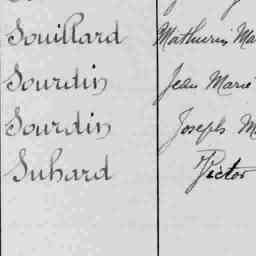 Souillard Mathurin Ma
Sourdin Jean Marie
Sourdin Joseph M
Suhard Victor